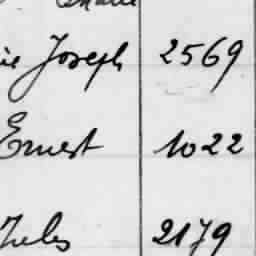 Joseph 2569
Ernest 1022
Jules 2179